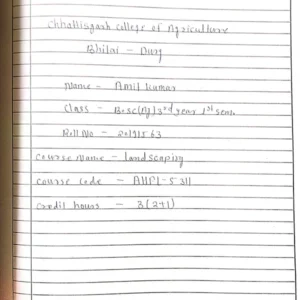 Chhattisgarh college of Agriculture
Bhilai - Durg
Name - Amit Kumar
Class - B.sc(Ag) 3rd year 1st sem.
Roll No - 20191563
course Name - landscaping
course code - AHPL-5311
credit hours - 3(2+1)